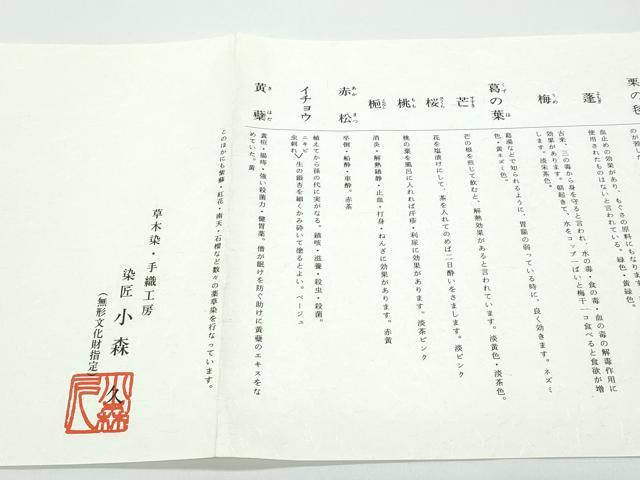 栗の
のが苦し
蓬
よもぎ
血止めの効果があり、もぐさの原料にもなります
使用されたものはないと言われている。緑色・黄緑色。
梅
うめ
古来、三の毒から身を守ると言われ、水の毒・食の毒・血の毒の解毒作用に
効果があります。朝起きて、水をコップ一ぱいと梅干一コ食べると食欲が増
します。淡茶色。
葛の葉
くず は
葛湯などで知られるように、胃腸の弱っている時に、良く効きます。ネズミ
色・黄ネズミ色。
芒
すすき
芒の根を煎じて飲むと、解熱効果があると言われています。淡黄色・淡茶色。
桜
さくら
花を塩漬けにして、茶を入れてのめば二日酔いをさまします。淡ピンク
桃
もも
桃の葉を風呂に入れれば汗疹・利尿に効果があります。淡茶ピンク
梔
消炎・解熱鎮静・止血・打身・ねんざに効果があります。赤黄
赤松
あか まつ
卒倒・船酔・車酔。赤茶
イチョウ
植えてから孫の代に実がなる。鎮咳・滋養・殺虫・殺菌。
ニキビ
虫刺れ 生の銀杏を細くかみ砕いて塗るとよい。ベージュ
黄蘗
き はだ
黄疸・腸痔・強い殺菌力・健胃薬。僧が眠けを防ぐ助けに黄蘗のエキスをな
めていた。黄
このほかにも紫蘇・紅花・南天・石榴など数々の薬草染を行なっています。
草木染・手織工房
染匠 小森 久
(無形文化財指定)